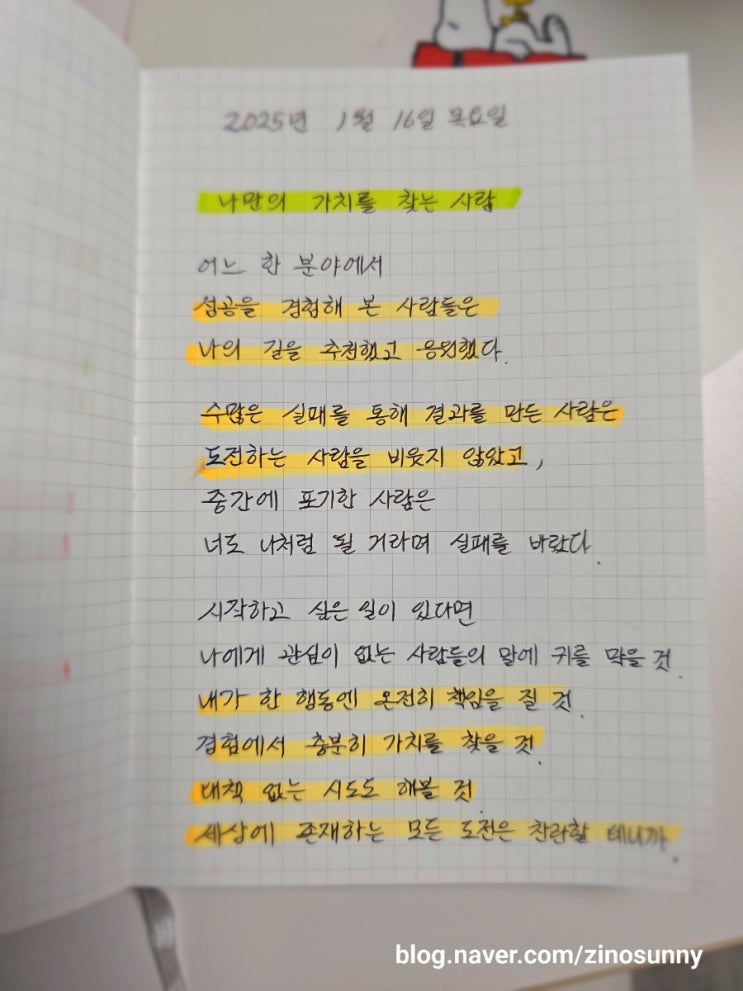 2025년 1월 16일 목요일
나만의 가치를 찾는 사람
어느 한 분야에서
성공을 경험해 본 사람들은
나의 길을 추천했고 응원했다.
수많은 실패를 통해 결과를 만든 사람은
도전하는 사람을 비웃지 않았고,
중간에 포기한 사람은
너도 나처럼 될 거라며 실패를 바랐다.
시작하고 싶은 일이 있다면
나에게 관심이 없는 사람들의 말에 귀를 막을 것.
내가 한 행동엔 온전히 책임을 질 것.
경험에서 충분히 가치를 찾을 것.
대책 없는 시도도 해볼 것.
세상에 존재하는 모든 도전은 찬란할 테니까.
blog.naver.com/zinosunny